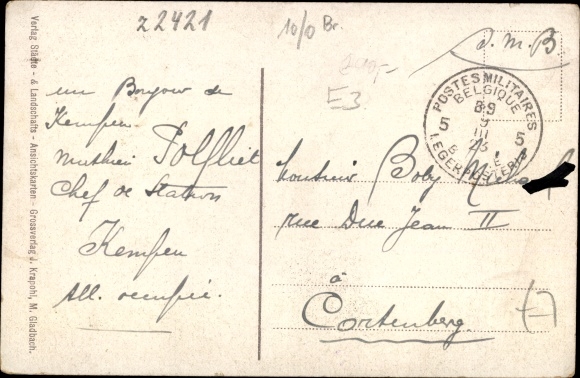 z2421
10/0 Br.
S.M.B
E3
POSTES MILITAIRES
BELGIQUE
5 5
LEGERPOSTERIJ
un Bonjour de
Kempen
Mathieu Polfliet
Chef de Station
Kempen
All. occupée.
Monsieur Boby
rue Duc Jean II
à
Cortenberg.
Verlag Städte- & Landschafts-Ansichtskarten-Grossverlag J. Krapohl, M. Gladbach.